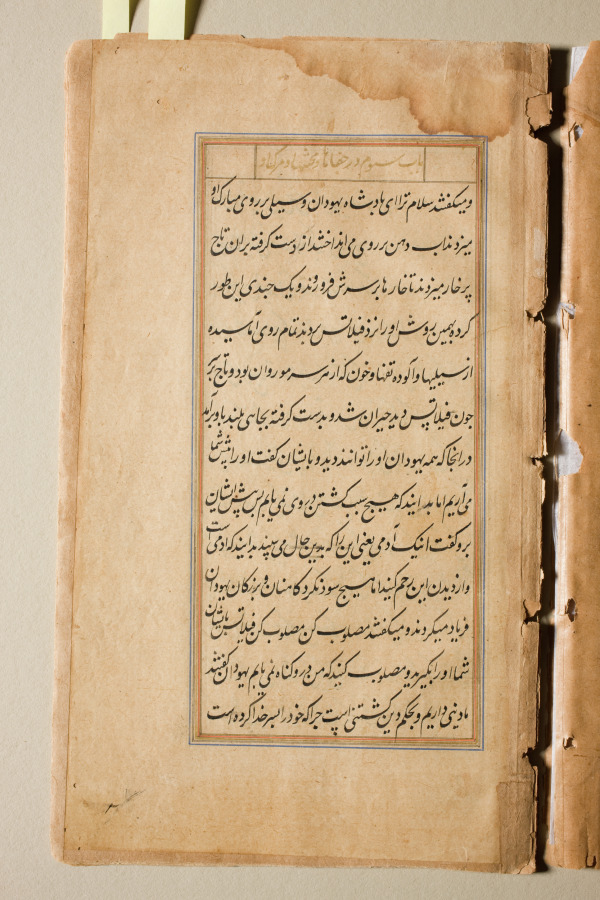 باب سوم در جفاها و
و میگفتند سلام ترا ای پادشاه یهودان و سیلی بر روی مبارک او
میزدند آب دهن بر روی می انداختند از دست گرفته بران تاج
پر خار میزدند تا خارها بر سرش فرو روند و یک چندی این طور
کرده بهمین روش او را نزد فیلاتس بردند تمام روی آماسیده
از سیلیها و آلوده تفها و خون که از سر سر مو روان بود و تاج بر سر
چون فیلاتس دید حیران شد و بدست گرفته بجایی بلند باو برآمد
در انجا که همه یهودان او را توانند دید و بایشان گفت او را پیش شما
می آریم اما بدانید که هیچ سبب کشتن در وی نمی یابم پس پیش ایشان
برو گفت اینک آدمی یعنی این را که بدین حال می بینید بدانید که آدمی است
و از دیدن این رحم کنید اما هیچ سود نکرد کاهنان و بزرگان یهودان
فریاد میکردند و میگفتند مصلوب کن مصلوب کن فیلاتس بایشان
شما او را بگیرید و مصلوب کنید که من درو گناه نمی یابم یهودان گفتند
ما دینی داریم و بحکم دین کشتنی است چرا که خود را پسر خدا کرده است